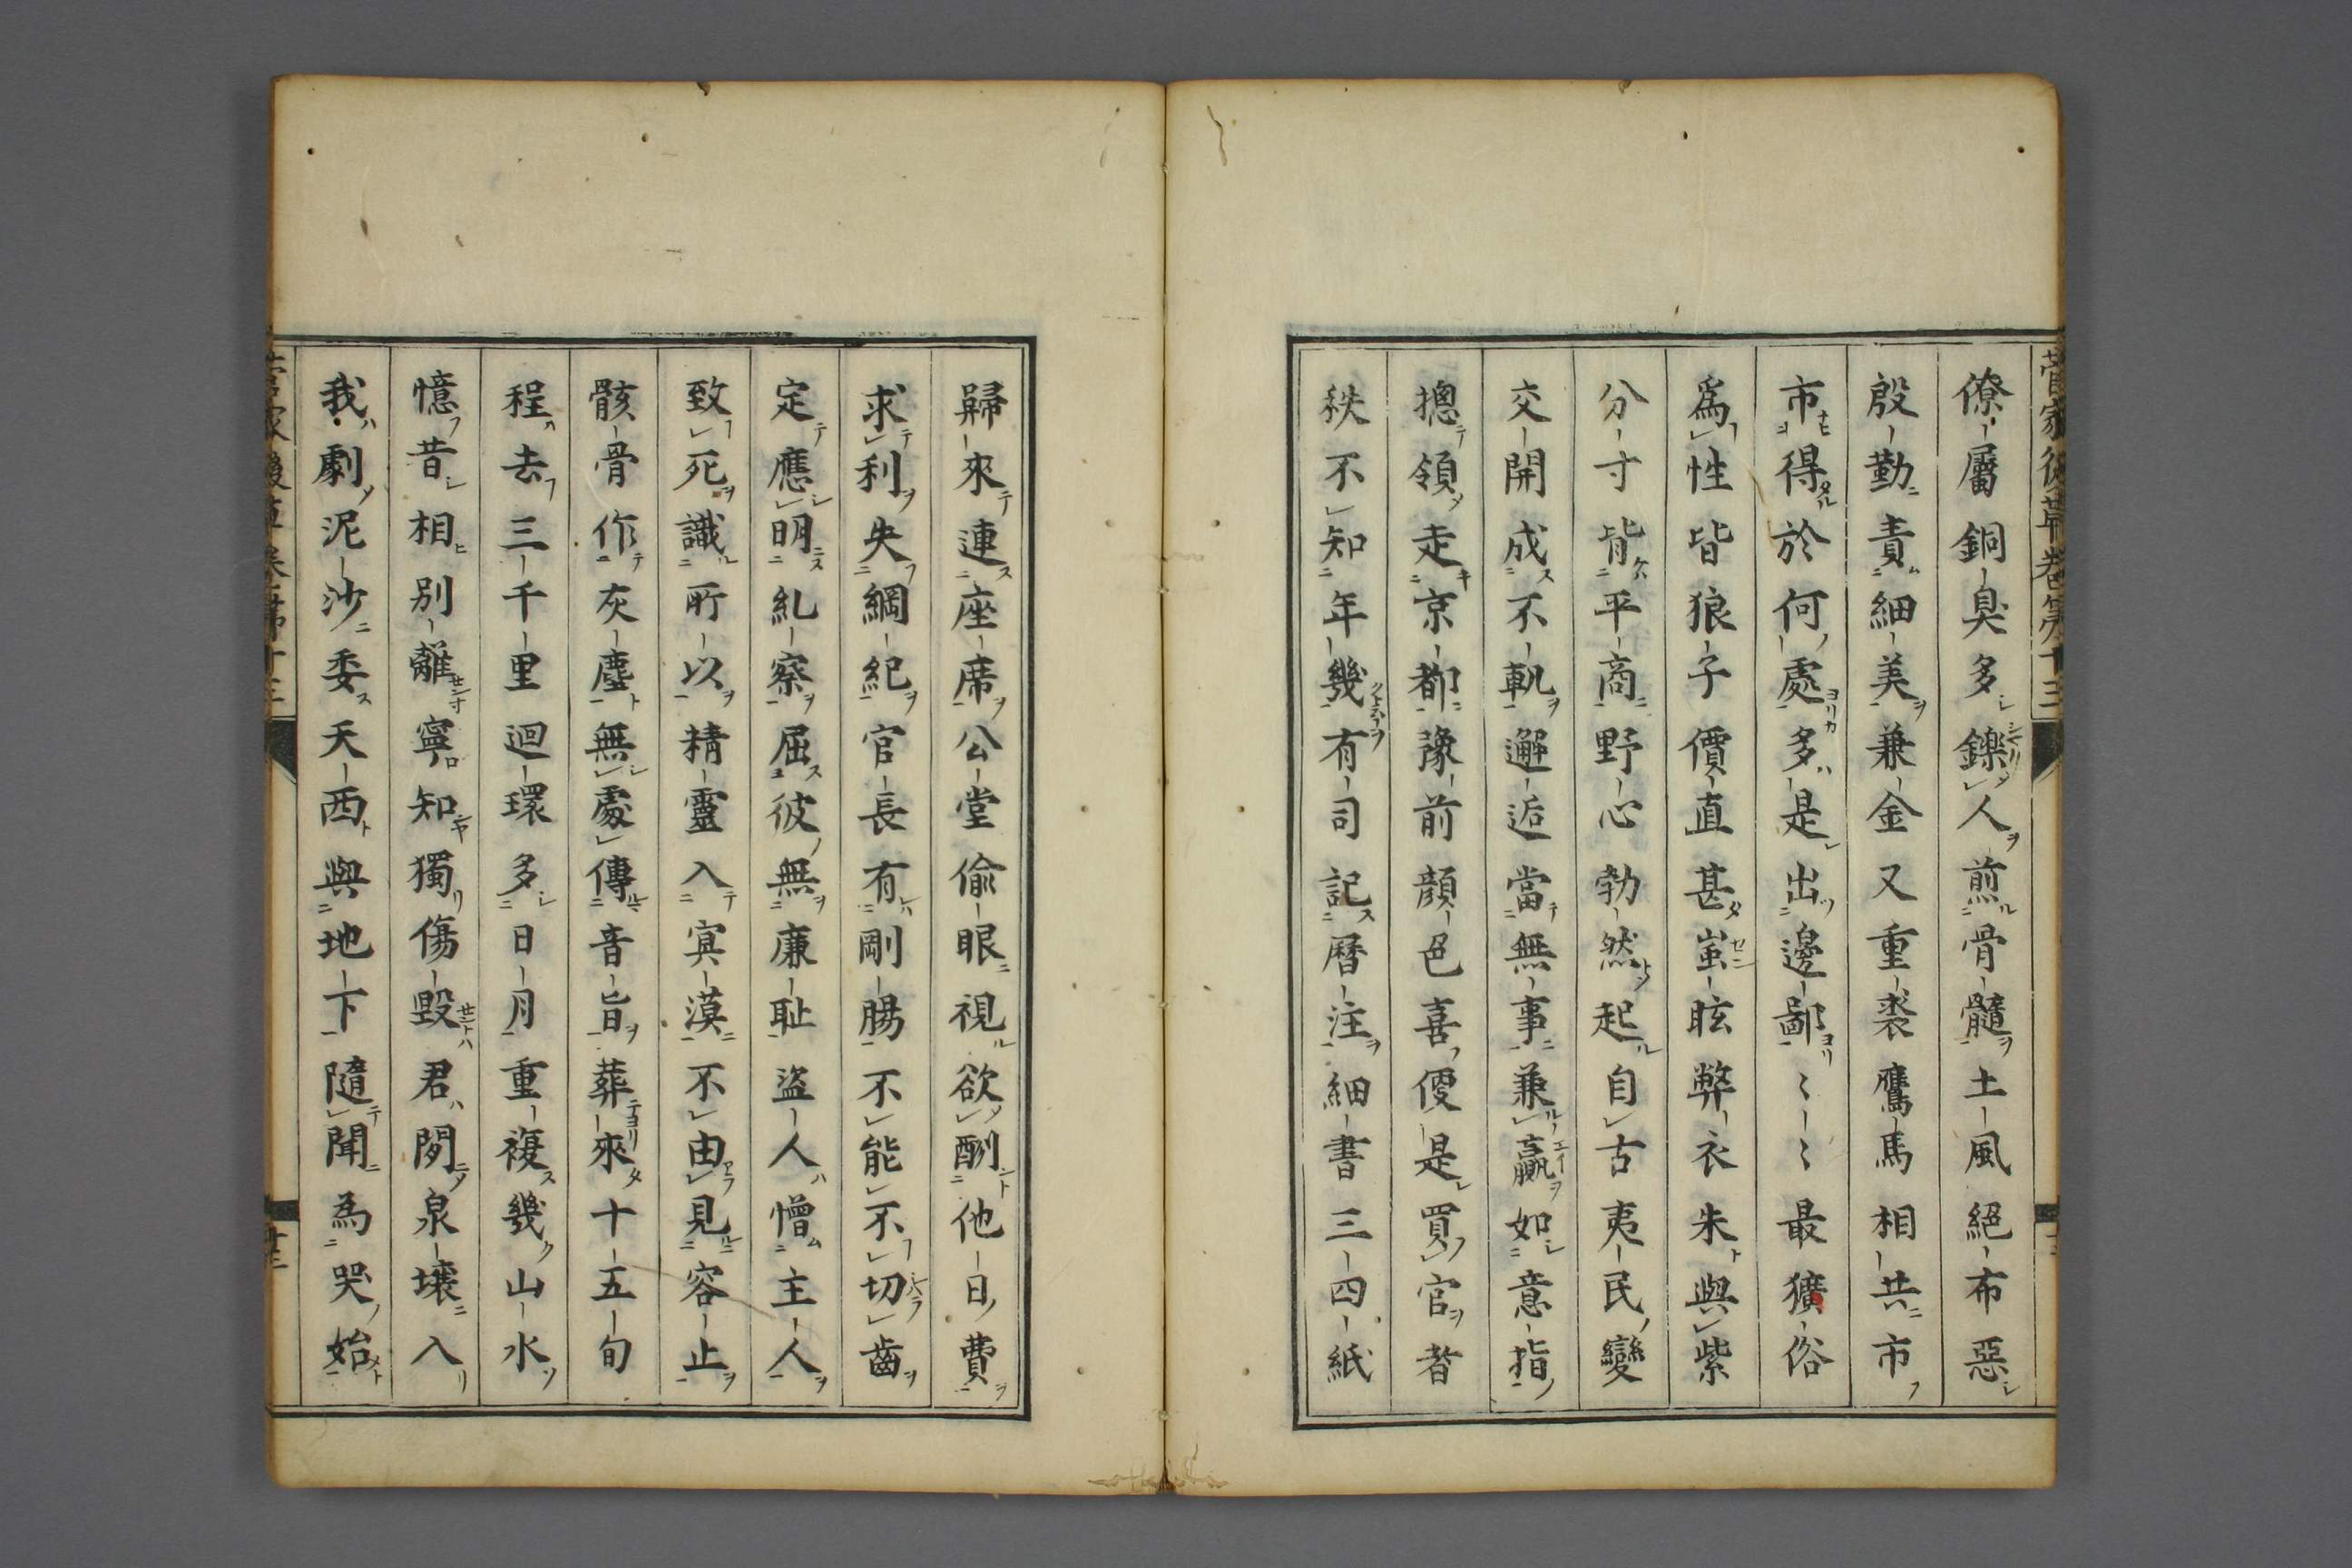 菅家後草卷第十三
僚屬銅臭多鑠人煎骨髓土風絕布惡
殷勤責細美兼金又重裘鷹馬相共市
市得於何處多是出邊鄙〻〻最獷俗
爲性皆狼子價直甚蚩眩弊衣朱與紫
分寸背平商野心勃然起自古夷民變
交開成不軌邂逅當無事兼贏如意指
摠領走京都豫前顏色喜便是買官者
秩不知年幾有司記曆注細書三四紙
歸來連座席公堂偷眼視欲酬他日費
求利失綱紀官長有剛腸不能不切齒
定應明糺察屈彼無廉耻盜人憎主人
致死識所以精靈入冥漠不由見容止
骸骨作灰塵無處傳音旨葬來十五旬
程去三千里迴環多日月重複幾山水
憶昔相別離寧知獨傷毀君間泉壤入
我劇泥沙委天西與地下隨聞為哭始